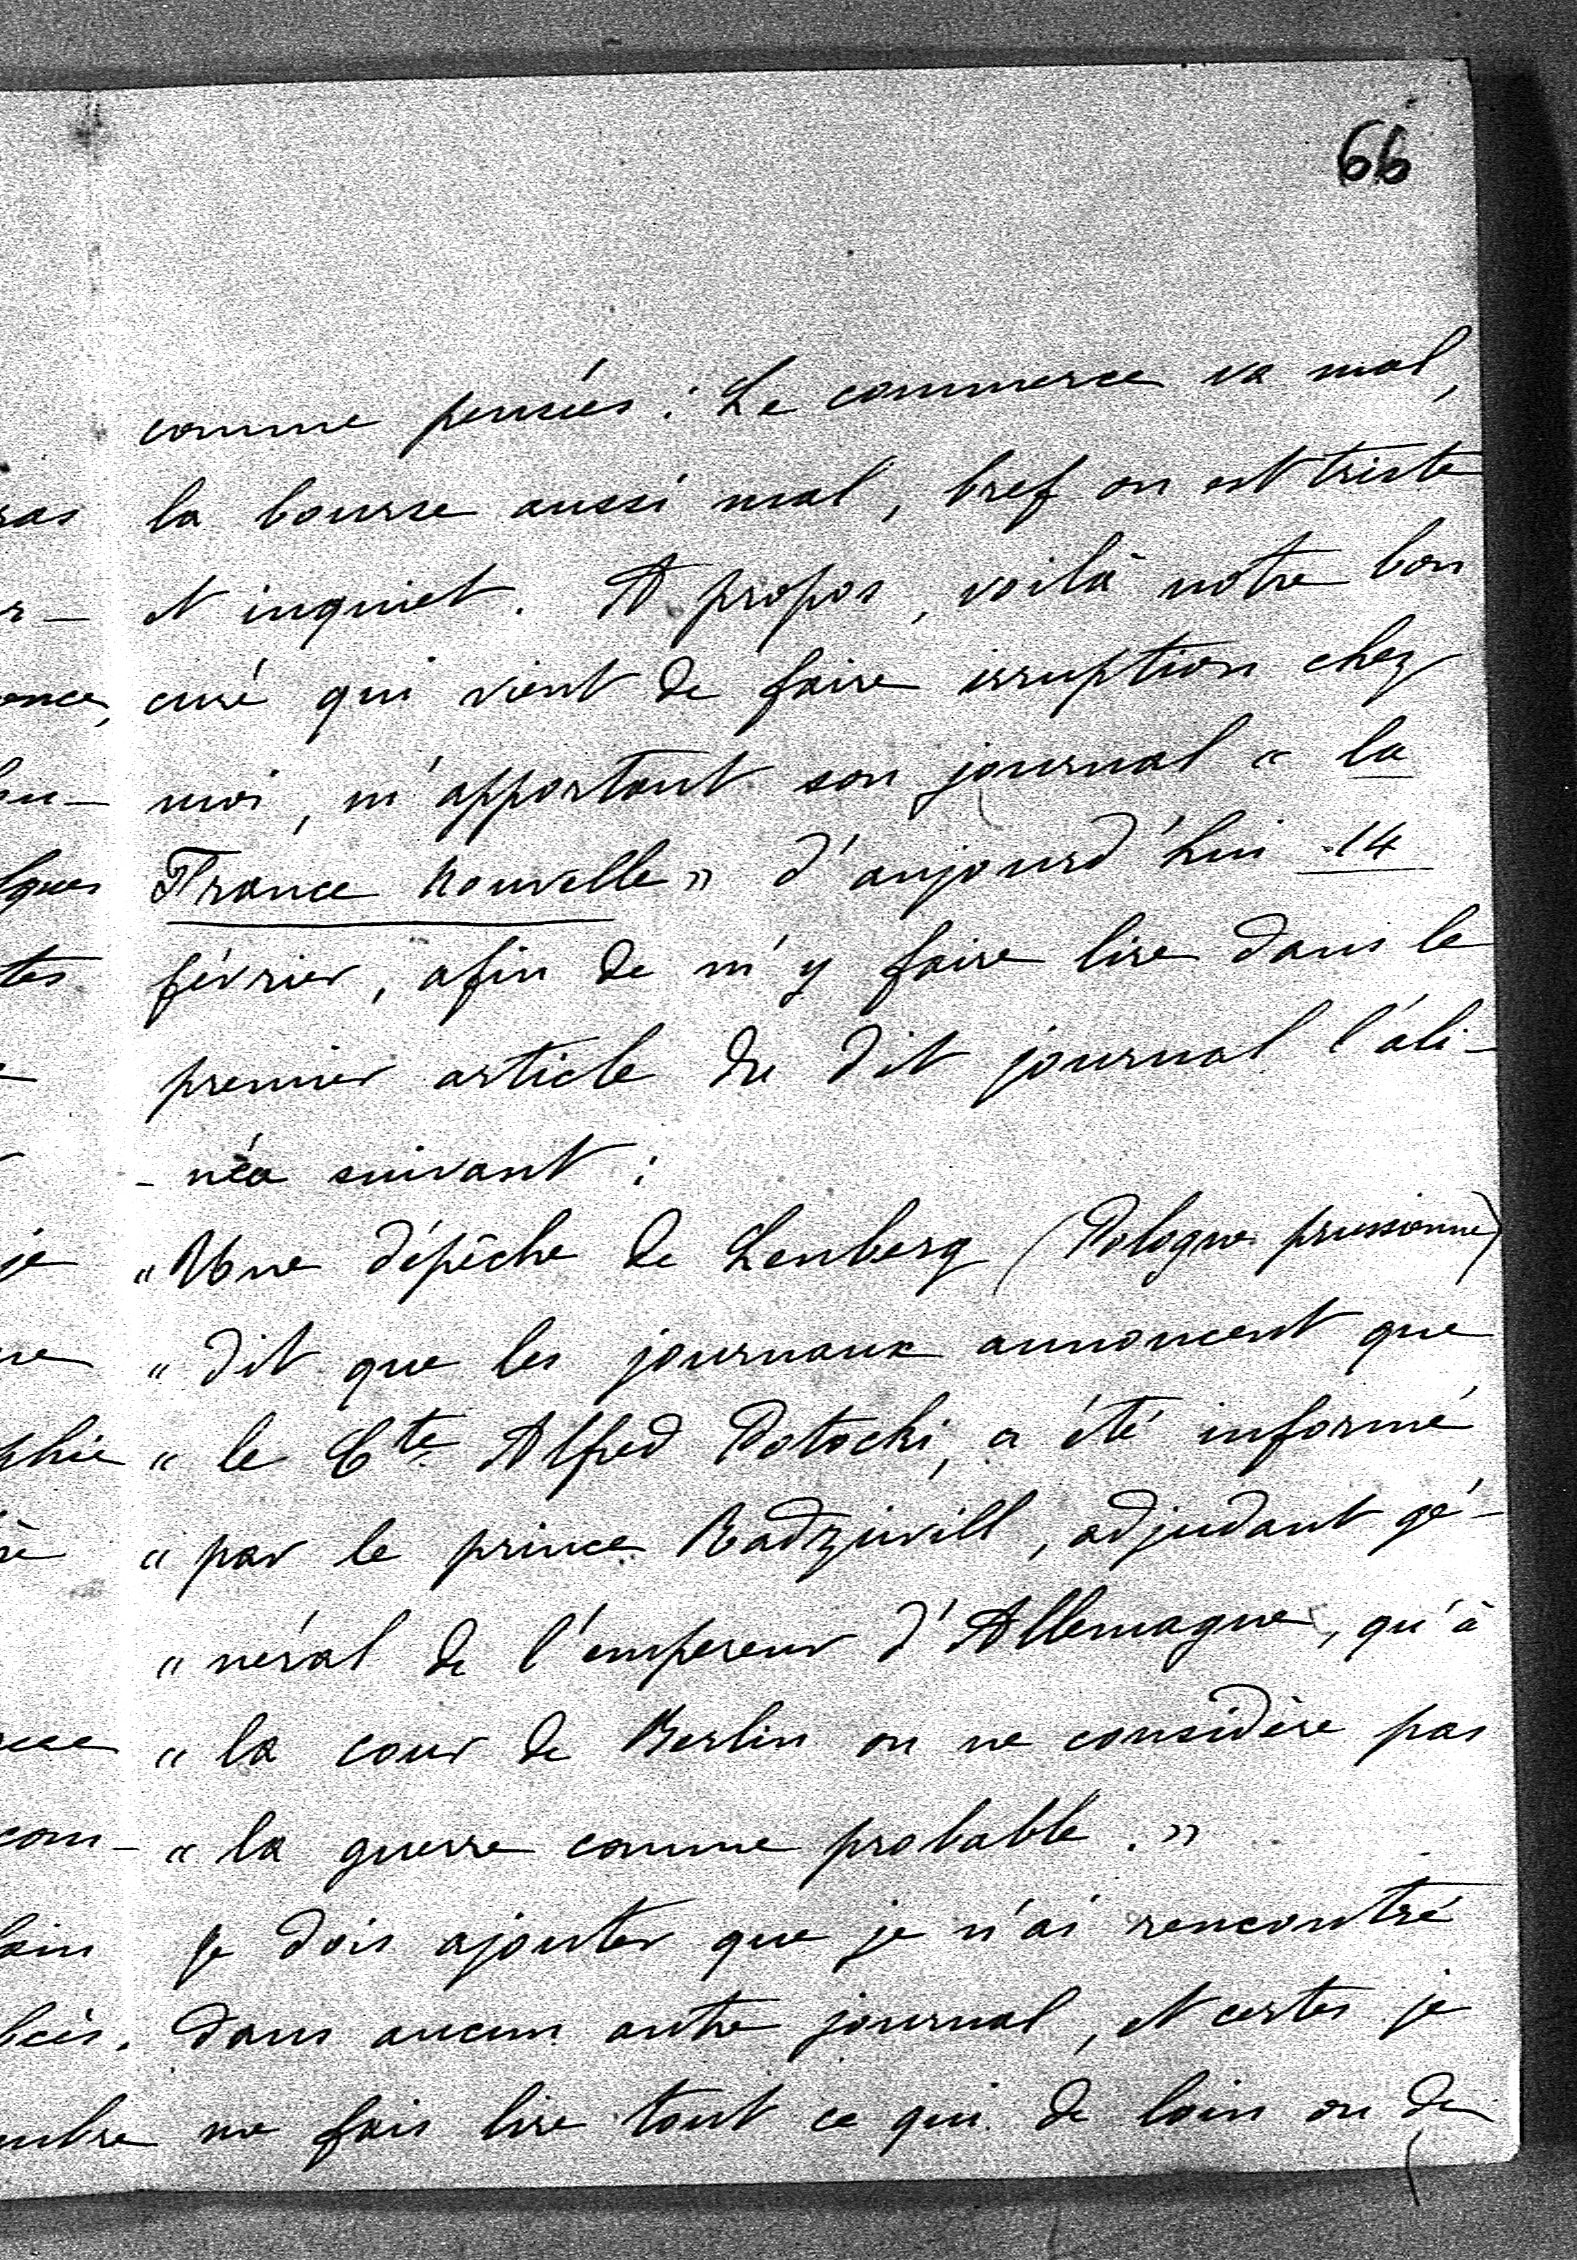 66
comme pensées : Le commerce va mal,
la bourse aussi mal, bref on est triste
et inquiet. A propos, voilà notre bon
curé qui vient de faire irruption chez
moi, m'apportant son journal « la
France Nouvelle » d'aujourd'hui 14
février, afin de m'y faire lire dans le
premier article du dit journal l'ali-
- néa suivant :
« Une dépêche de Lemberg (Pologne prussienne)
« dit que les journaux annoncent que
« le Cte Alfred Potocki, a été informé
« par le prince Radziwill, adjudant gé-
« néral de l'empereur d'Allemagne, qu'à
« la cour de Berlin on ne considère pas
« la guerre comme probable. »
Je dois ajouter que je n'ai rencontré
dans aucun autre journal, et certes je
me fais lire tout ce qui de loin ou de